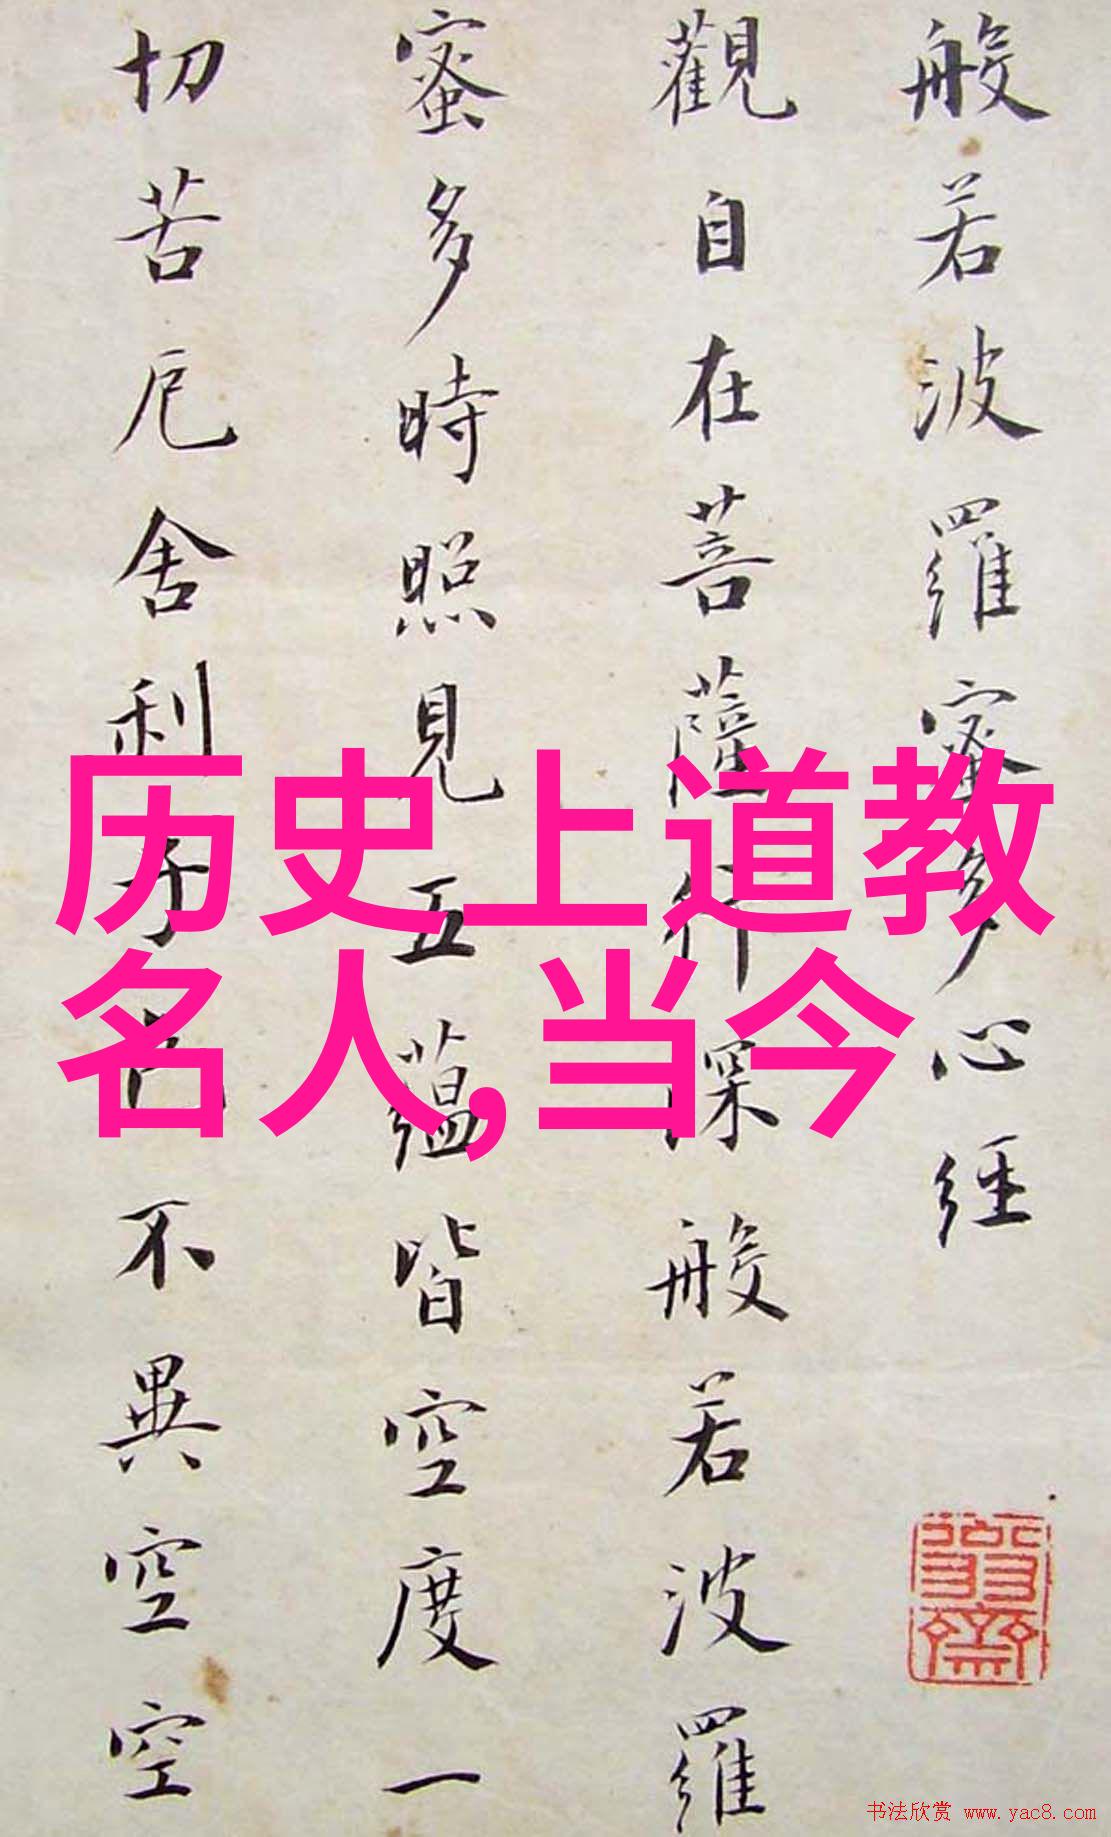 般若波羅蜜多心經
觀自在菩薩行深般若波羅
蜜多時照見五蘊皆空度一
切苦厄舍利子色不異空空
历史上道教
名人,当今
书法欣赏 www.yac8.com